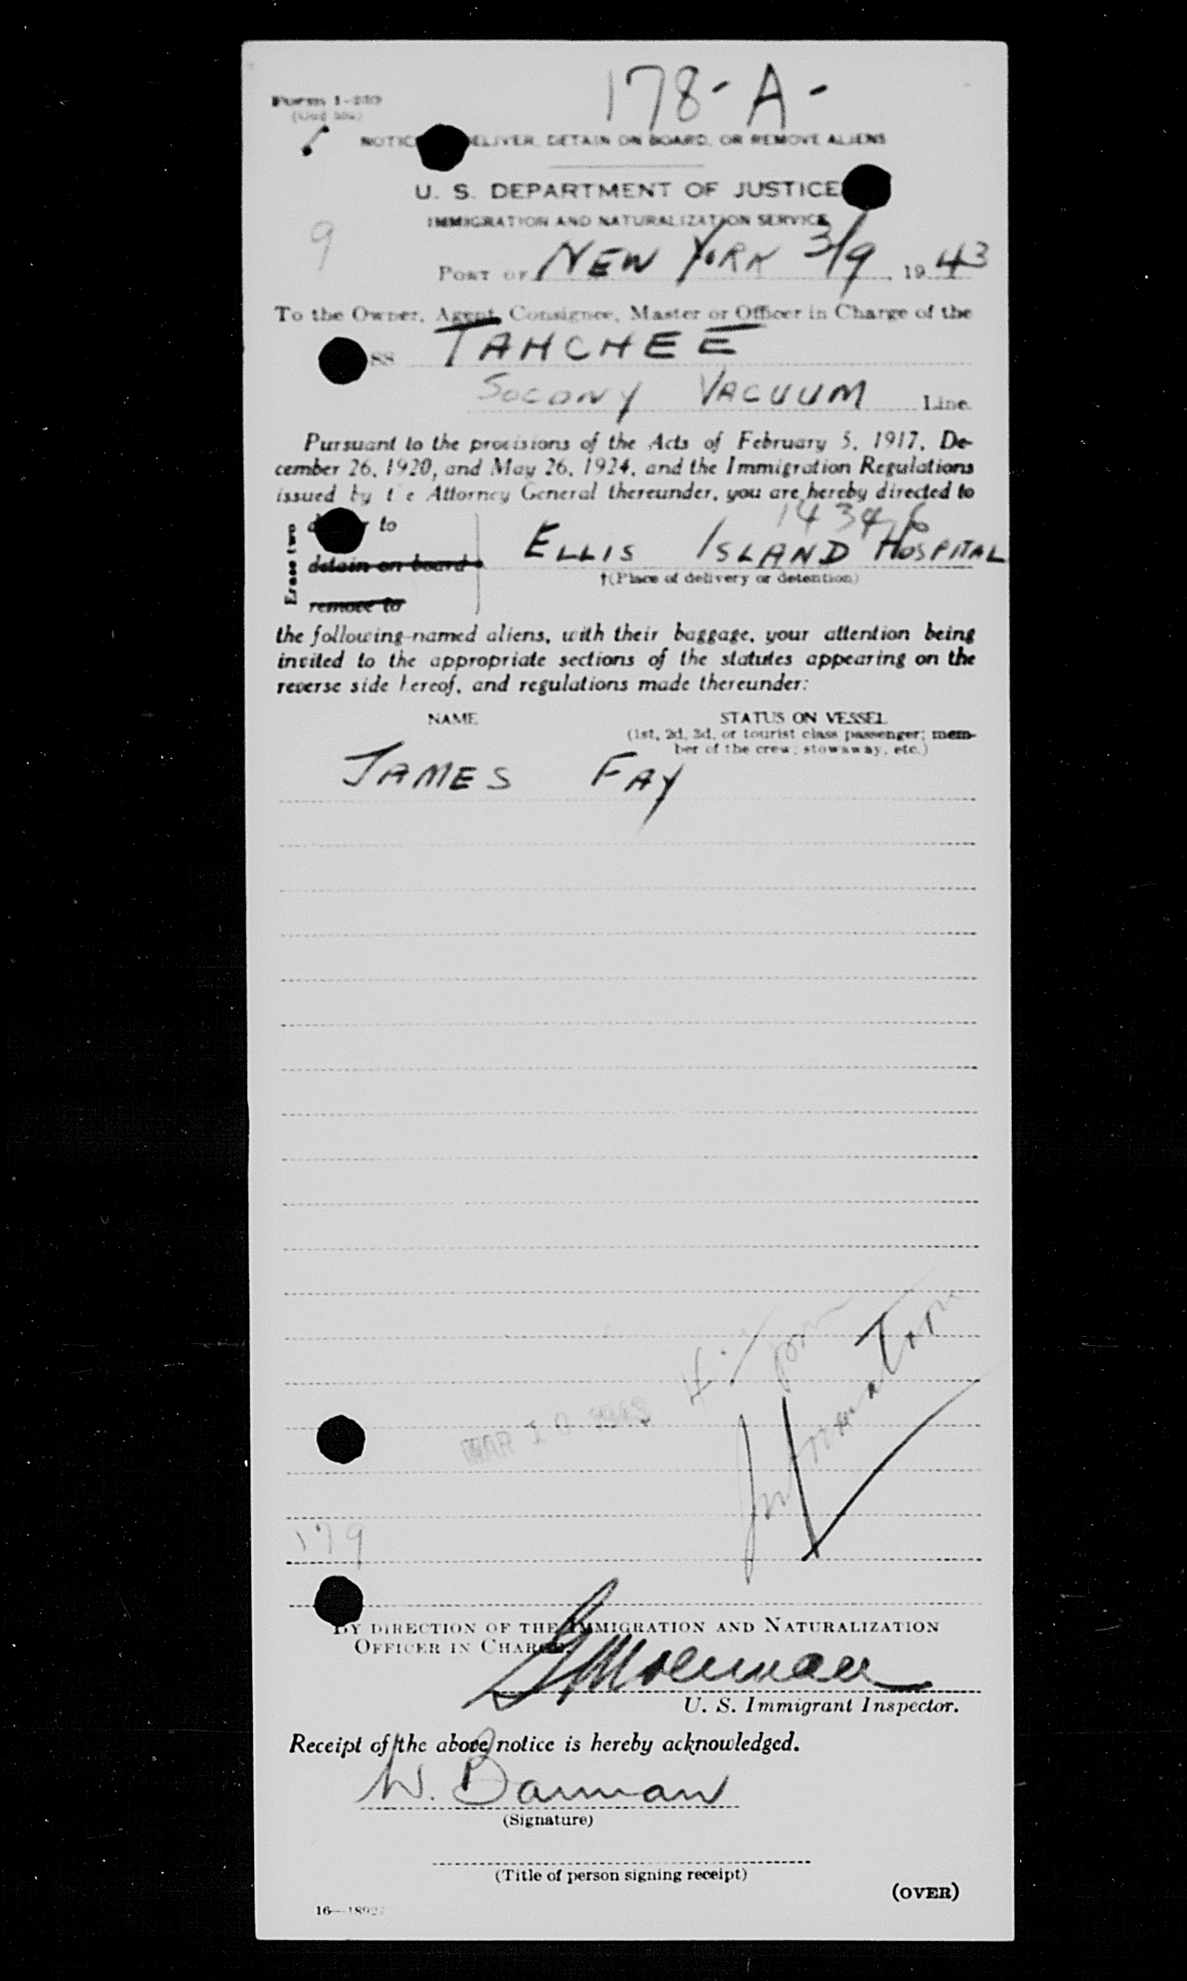 178-A-
Form I-259
NOTICE DELIVER, DETAIN ON BOARD, OR REMOVE ALIENS
U. S. DEPARTMENT OF JUSTICE
IMMIGRATION AND NATURALIZATION SERVICE
9
PORT OF NEW YORK 3/9, 1943
To the Owner, Agent, Consignee, Master or Officer in Charge of the
SS TAHCHEE
SOCONY VACUUM Line.
Pursuant to the provisions of the Acts of February 5, 1917, De-
cember 26, 1920, and May 26, 1924, and the Immigration Regulations
issued by t e Attorney General thereunder, you are hereby directed to
Erase two
to
detain on board
remove to
ELLIS ISLAND HOSPITAL
†(Place of delivery or detention)
the following-named aliens, with their baggage, your attention being
invited to the appropriate sections of the statutes appearing on the
reverse side hereof, and regulations made thereunder:
NAME STATUS ON VESSEL
(1st, 2d, 3d, or tourist class passenger; mem-
ber of the crew; stowaway, etc.)
JAMES FAY
MAR 10 1943
179
BY DIRECTION OF THE IMMIGRATION AND NATURALIZATION
OFFICER IN CHARGE.
U. S. Immigrant Inspector.
Receipt of the above notice is hereby acknowledged.
W. Barman
(Signature)
(Title of person signing receipt)
(OVER)